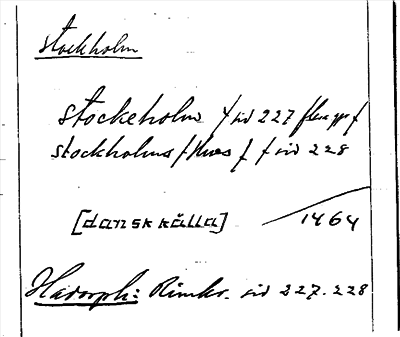 stockholm
stockeholm / sid 227
stockholms sid 228
[dansk källa] 1464
Hadorph: Rimkr. sid 227.228